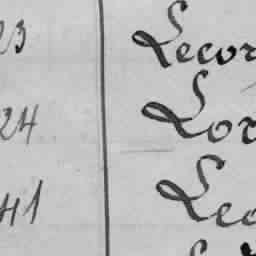 23 Lecor
24 Lor
41 Lec